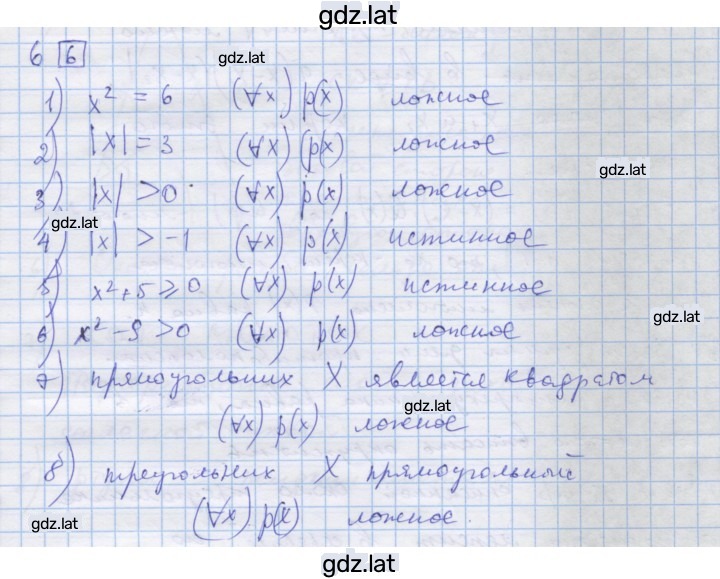 gdz.lat
6 6
gdz.lat
1) x² = 6 (∀x) p(x) ложное
2) |x| = 3 (∀x) (p(x) ложное
gdz.lat
3) |x| > 0 (∀x) p(x) ложное
gdz.lat
4) |x| > -1 (∀x) p(x) истинное
5) x² + 5 ⩾ 0 (∀x) p(x) истинное
gdz.lat
6) x² - 5 > 0 (∀x) p(x) ложное
7) прямоугольних X является квадратом
gdz.lat
(∀x) p(x) ложное
8) треугольних X прямоугольный
gdz.lat
(∀x) p(x) ложное.
gdz.lat